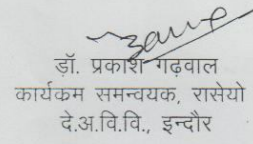 डॉ. प्रकाश गढ़वाल
कार्यकम समन्वयक, रासेयो
दे.अ.वि.वि., इन्दौर